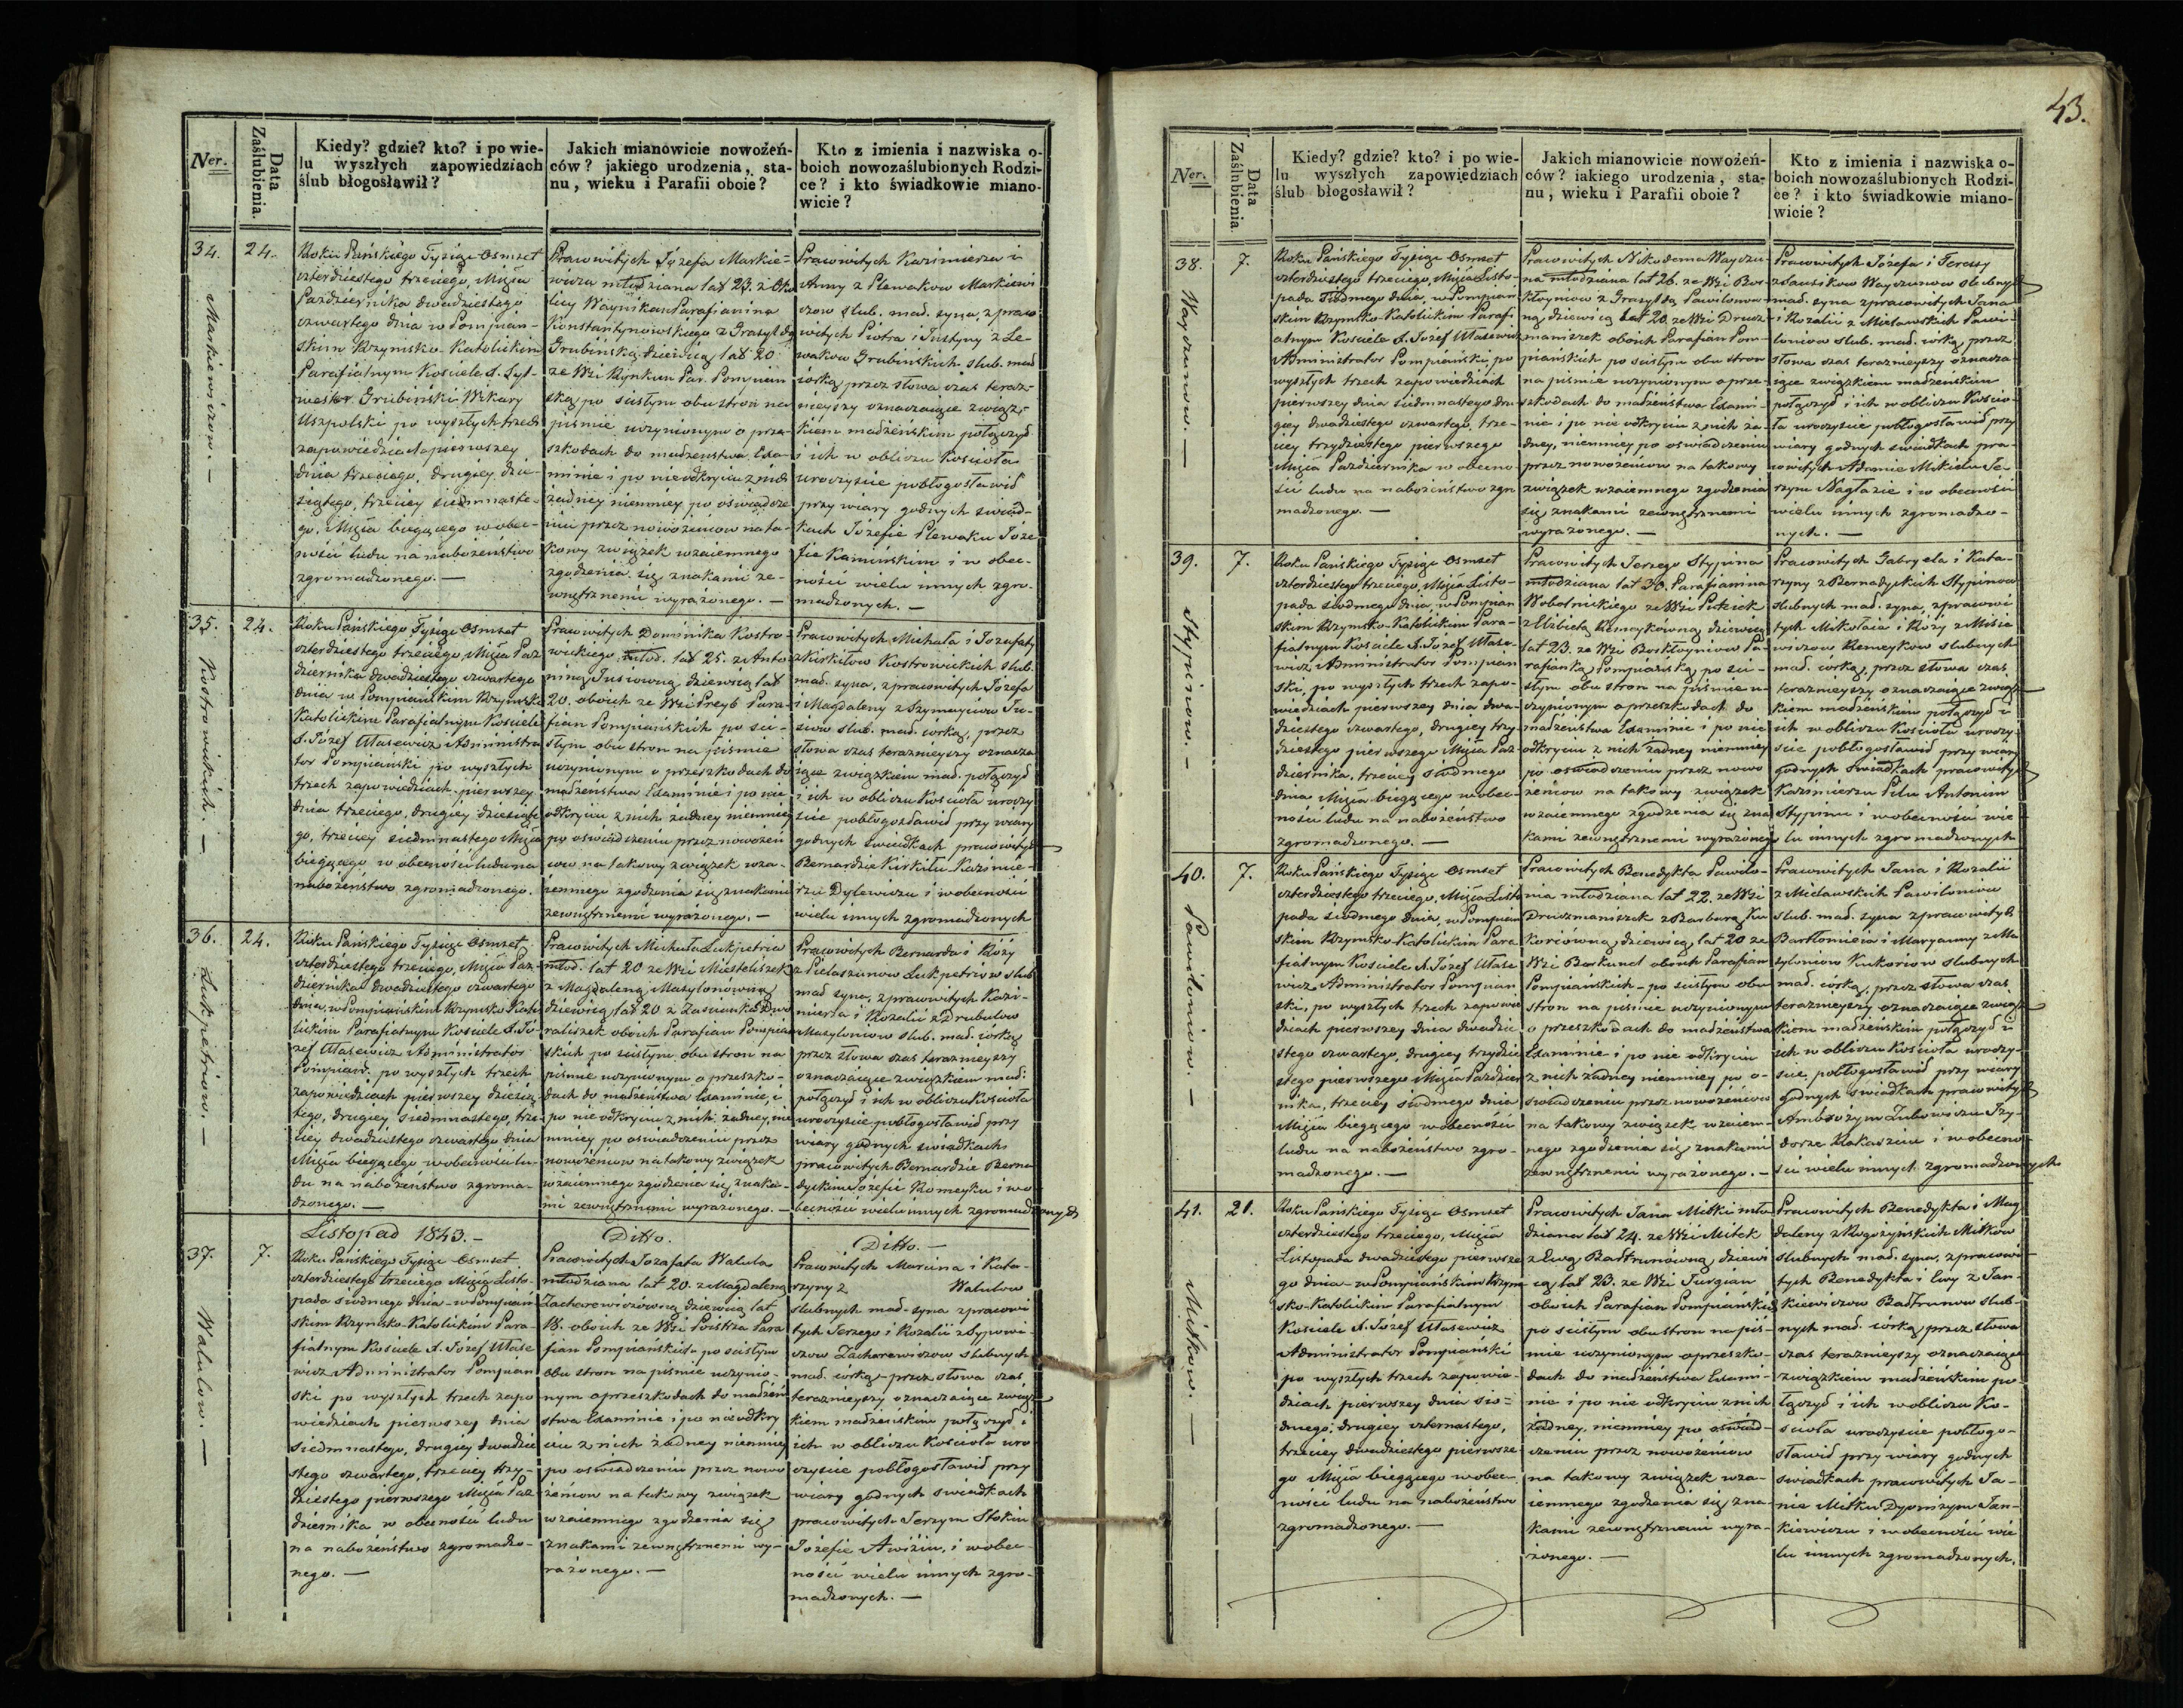 Ner.
Data Zaślubienia.
Kiedy? gdzie? kto? i po wie-
lu wyszłych zapowiedziach
ślub błogosławił?
Jakich mianowicie nowożeń-
ców? jakiego urodzenia, sta-
nu, wieku i Parafii oboie?
Kto z imienia i nazwiska o-
boich nowozaślubionych Rodzi-
ce? i kto świadkowie miano-
wicie?
34.
24.
Markiewiczow. —
Roku Pańskiego Tysiąc Osmset
czterdziestego trzeciego, Msca
Pazdziernika dwadziestego
czwartego dnia w Pompian-
skim Rzymsko-Katolickim
Parafialnym Kosciele X. Syl-
wester Grubiński Wikary
Uszpolski po wyszłych trzech
zapowiedziach pierwszey
dnia trzeciego, drugiey dzie-
siątego, trzeciey siedmnaste-
go Msca biegącego w obec-
ności ludu na nabożeństwo
zgromadzonego. —
Pracowitych Józefa Markie-
wicza młodziana lat 23. z Oko
licy Waynikan Parafianina
Konstantynowskiego z Grasyldą
Grubińską dziewicą lat 20.
ze Wsi Rynkun Par. Pompian
ską po scisłym obu stron na
pismie uczynionym o prze-
szkodach do małżenstwa Exa-
minie i po nieodkryciu z nich
żadney niemniey po oświadcze
niu przez nowożencow na ta-
kowy związek wzaiemnego
zgodzenia się znakami ze-
wnętrznemi wyrażonego. —
Pracowitych Kazimierza i
Anny z Plewakow Markiewi
czow slub. mał. syna, z praco
witych Piotra i Justyny z Le-
wakow Grubinskich slub. mał
córką przez słowa czas teraz-
nieyszy oznaczaiące związ-
kiem małżeńskim połączył
i ich w obliczu Kościoła
uroczyscie pobłogosławił
przy wiary godnych świad-
kach Józefie Plewaku Józe
fie Kaminskim i w obec-
ności wielu innych zgro-
madzonych. —
35.
24.
Kostrowickich. —
Roku Pańskiego Tysiąc Osmset
czterdziestego trzeciego, Msca Paz
dziernika dwadziestego czwartego
dnia w Pompianskim Rzymsko
Katolickim Parafialnym Kosciele
X. Józef Własewicz Administra
tor Pompianski po wyszłych
trzech zapowiedziach pierwszey
dnia trzeciego, drugiey dziesiąte
go, trzeciey siedmnastego Msca
biegącego w obecności ludu na
nabożeństwo zgromadzonego.
Pracowitych Dominika Kostro-
wickiego młod. lat 25. z Anto
niną Jusiowną dziewicą lat
20. oboich ze Wsi Preyb Para-
fian Pompianskich po sci-
słym obu stron na pismie
uczynionym o przeszkodach do
małżeństwa Examinie i po nie
odkryciu z nich żadney niemniey
po oświadczeniu przez nowożeń
cow na takowy związek wza-
iemnego zgodzenia się znakami
zewnętrznemi wyrażonego. —
Pracowitych Michała i Jozefaty
z Kirkiłow Kostrowickich slub.
mał. syna, z pracowitych Jozefa
i Magdaleny z Szymaycow Ju-
siow slub. mał. córką, przez
słowa czas teraznieyszy oznacza
iące związkiem mał. połączył
i ich w obliczu Kościoła uroczy
scie pobłogosławił przy wiary
godnych swiadkach pracowitych
Bernardzie Kirkiłu Kazimie-
rzu Dylewiczu i w obecności
wielu innych zgromadzonych
36.
24.
Lukpetriow. —
Roku Pańskiego Tysiąc Osmset
czterdziestego trzeciego, Msca Paz-
dziernika dwadziestego czwartego
dnia, w Pompianskim Rzymsko Kato
lickim Parafialnym Kosciele X. Jó-
zef Własewicz Administrator
Pompian. po wyszłych trzech
zapowiedziach pierwszey dziesią
tego, drugiey siedmnastego, trze-
ciey dwadziestego czwartego dnia
Msca biegącego w obecności lu-
du na nabożeństwo zgroma-
dzonego. —
Pracowitych Michała Lukpetria
młod. lat 20 ze Wsi Miesteliszek
z Magdaleną Masylonowną
dziewicą lat 20 z Zascianka Dwo
raliszek oboich Parafian Pompian
skich po scisłym obu stron na
pismie uczynionym o przeszko-
dach do małżeństwa Examinie, i
po nie odkryciu z nich żadney, nie
mniey po oswiadczeniu przez
nowożeńcow na takowy związek
wzaiemnego zgodzenia się znaka-
mi zewnętrznemi wyrażonego. —
Pracowitych Bernarda i Róży
z Pielaszunow Lukpetriow slub
mał. syna, z pracowitych Kazi-
mierza i Rozalii z Drubulow
Masylonow slub. mał. córką
przez słowa czas teraznieyszy
oznaczaiące związkiem mał:
połączył i ich w obliczu Kościoła
uroczyscie pobłogosławił przy
wiary godnych swiadkach
pracowitych Bernardzie Berna
dyckim Józefie Romeyku i w o-
becności wielu innych zgromadzonych
Listopad 1843. —
Ditto.
Ditto. —
37.
7.
Walulow. —
Roku Pańskiego Tysiąc Osmset
czterdziestego trzeciego Msca Listo-
pada siodmego dnia w Pompiań
skim Rzymsko-Katolickim Para-
fialnym Kosciele X. Józef Własе
wicz Administrator Pompian
ski po wyszłych trzech zapo
wiedziach pierwszey dnia
siedmnastego, drugiey dwadzie
stego czwartego, trzeciey trzy-
dziestego pierwszego Msca Paz
dziernika w obecności ludu
na nabożeństwo zgromadzo-
nego. —
Pracowitych Jozafata Walula
młodziana lat 20. z Magdaleną
Zacharewiczówną dziewicą lat
18. oboich ze Wsi Poistra Para
fian Pompianskich po scisłym
obu stron na pismie uczynio-
nym o przeszkodach do małżeń
stwa Examinie i po nieodkry
ciu z nich żadney niemniey
po oswiadczeniu przez nowo
żeńcow na takowy związek
wzaiemnego zgodzenia się
znakami zewnętrznemi wy-
rażonego. —
Pracowitych Marcina i Kata-
rzyny z Walulow
slubnych mał. syna z pracowi
tych Jerzego i Rozalii z Sypowi-
czow Zacharewiczow slubnych
mał. córką przez słowa czas
teraznieyszy oznaczaiące związ
kiem małżeńskim połączył i
ich w obliczu Kościoła uro
czyscie pobłogosławił przy
wiary godnych swiadkach
pracowitych Jerzym Stokiu
Józefie Awiżiu, i w obec-
ności wielu innych zgro-
madzonych. —
43.
Ner.
Data Zaślubienia.
Kiedy? gdzie? kto? i po wie-
lu wyszłych zapowiedziach
ślub błogosławił?
Jakich mianowicie nowożeń-
ców? iakiego urodzenia, sta-
nu, wieku i Parafii oboie?
Kto z imienia i nazwiska o-
boich nowozaślubionych Rodzi-
ce? i kto świadkowie miano-
wicie?
38.
7.
Wayczunow. —
Roku Pańskiego Tysiąc Osmset
czterdziestego trzeciego, Msca Listo-
pada siodmego dnia, w Pompian
skim Rzymsko-Katolickim Parafi
alnym Kosciele X. Józef Własewicz
Administrator Pompianski po
wyszłych trzech zapowiedziach
pierwszey dnia siedmnastego dru
giey dwadziestego czwartego, trze-
ciey trzydziestego pierwszego
Msca Pazdziernika w obecno
ści ludu na nabożeństwo zgro
madzonego. —
Pracowitych Nikodema Wayczu-
na młodziana lat 26. ze Wsi Bos
kłoyniow z Grasyldą Pawilonow
ną dziewicą lat 20. ze Wsi Drucz
maniszek oboich Parafian Pom-
pianskich po scisłym obu stron
na pismie uczynionym o prze-
szkodach do małżeństwa Exami-
nie i po nie odkryciu z nich ża-
dney, niemniey po oświadczeniu
przez nowożencow na takowy
związek wzaiemnego zgodzenia
się znakami zewnętrznemi
wyrażonego. —
Pracowitych Józefa i Teressy
z Sausikow Wayczunow slubnych
mał. syna z pracowitych Jana
i Rozalii z Micławskich Pawi-
lonow slub. mał. córką przez
słowa czas teraznieyszy oznacza-
iące związkiem małżeńskim
połączył i ich w obliczu Kościo-
ła uroczyscie pobłogosławił przy
wiary godnych swiadkach pra-
cowitych Adamie Mikielu Je-
rzym Nagłazie i w obecności
wielu innych zgromadzo-
nych. —
39.
7.
Stypinow. —
Roku Pańskiego Tysiąc Osmset
czterdziestego trzeciego, Msca Listo-
pada siodmego dnia, w Pompian
skim Rzymsko-Katolickim Para-
fialnym Kosciele X. Józef Własе-
wicz Administrator Pompian
ski, po wyszłych trzech zapo-
wiedziach pierwszey dnia dwa-
dziestego czwartego, drugiey trzy-
dziestego pierwszego Msca Paz
dziernika, trzeciey siodmego
dnia Msca biegącego w obec-
ności ludu na nabożeństwo
zgromadzonego. —
Pracowitych Jerzego Stypina
młodziana lat 30. Parafianina
Wobolnickiego ze Wsi Potciek
z Elżbietą Remeykówną dziewicą
lat 23. ze Wsi Boskłoyniow Pa-
rafianką Pompiańską po sci-
słym obu stron na pismie u-
czynionym o przeszkodach do
małżeństwa Examinie i po nie
odkryciu z nich żadney niemniey
po oswiadczeniu przez nowo
żeńcow na takowy związek
wzaiemnego zgodzenia się zna
kami zewnętrznemi wyrażonego
Pracowitych Gabryela i Kata-
rzyny z Bernadyckich Stypinow
slubnych mał. syna, z pracowi
tych Mikołaia i Róży z Misie
wiczow Remeykow slubnych
mał. córką, przez słowa czas
teraznieyszy oznaczaiące związ-
kiem małżeńskim połączył i
ich w obliczu Kościoła uroczy-
scie pobłogosławił przy wiary
godnych swiadkach pracowitych
Kazimierzu Pilu Antonim
Stypinu i w obecności wie
lu innych zgromadzonych
40.
7.
Pawilonow. —
Roku Pańskiego Tysiąc Osmset
czterdziestego trzeciego, Msca Listo
pada siodmego dnia, w Pompian
skim Rzymsko-Katolickim Para
fialnym Kosciele X. Józef Własе
wicz Administrator Pompian
ski, po wyszłych trzech zapowie
dziach pierwszey dnia dwudzie
stego czwartego, drugiey trzydzie
stego pierwszego Msca Pazdzier
nika, trzeciey siodmego dnia
Msca biegącego w obecności
ludu na nabożeństwo zgro-
madzonego. —
Pracowitych Benedykta Pawilo-
nia młodziana lat 22. ze Wsi
Druczmaniszek z Barbarą Ku
koriówną dziewicą lat 20 ze
Wsi Barkund oboich Parafian
Pompianskich po scisłym obu
stron na pismie uczynionym
o przeszkodach do małżeństwa
Examinie i po nie odkryciu
z nich żadney niemniey po o-
świadczeniu przez nowożeńcow
na takowy związek wzaiem-
nego zgodzenia się znakami
zewnętrznemi wyrażonego. —
Pracowitych Jana i Rozalii
z Micławskich Pawilonow
slub. mał. syna z pracowitych
Bartłomieia i Maryanny z Ma
sylonow Kukoriow slubnych
mał. córką, przez słowa czas
teraznieyszy oznaczaiące związ
kiem małżeńskim połączył i
ich w obliczu Kościoła uroczy-
scie, pobłogosławił przy wiary
godnych swiadkach pracowitych
Ambrożym Zubowiczu Izy-
dorze Rakasziu i w obecno-
ści wielu innych zgromadzonych
41.
21.
Mitkow. —
Roku Pańskiego Tysiąc Osmset
czterdziestego trzeciego, Msca
Listopada dwadziestego pierwsze
go dnia w Pompianskim Rzym
sko-Katolickim Parafialnym
Kosciele X. Józef Własewicz
Administrator Pompianski
po wyszłych trzech zapowie-
dziach pierwszey dnia sio-
dmego, drugiey czternastego,
trzeciey dwadziestego pierwsze
go Msca biegącego w obec-
ności ludu na nabożeństwo
zgromadzonego. —
Pracowitych Jana Mitki mło-
dziana lat 24. ze Wsi Mitek
z Ewą Bałtrunówną dziewi
cą lat 23. ze Wsi Jurgian
oboich Parafian Pompianskich
po scisłym obu stron na pis-
mie uczynionym o przeszko-
dach do małżeństwa Exami-
nie i po nie odkryciu z nich
żadney, niemniey po oswiad-
czeniu przez nowożeńcow
na takowy związek wza-
iemnego zgodzenia się zna-
kami zewnętrznemi wyra-
żonego. —
Pracowitych Benedykta i Mag
daleny z Rogożynskich Mitkow
slubnych mał. syna, z pracowi-
tych Benedykta i Ewy z Jan-
kiewiczow Bałtrunow slub-
nych mał. córką przez słowa
czas teraznieyszy oznaczaiące
związkiem małżeńskim po-
łączył i ich w obliczu Ko-
scioła uroczyscie pobłogo-
sławił przy wiary godnych
swiadkach pracowitych Ja-
nie Mitku Dyonizym Jan-
kiewiczu i w obecności wie
lu innych zgromadzonych.